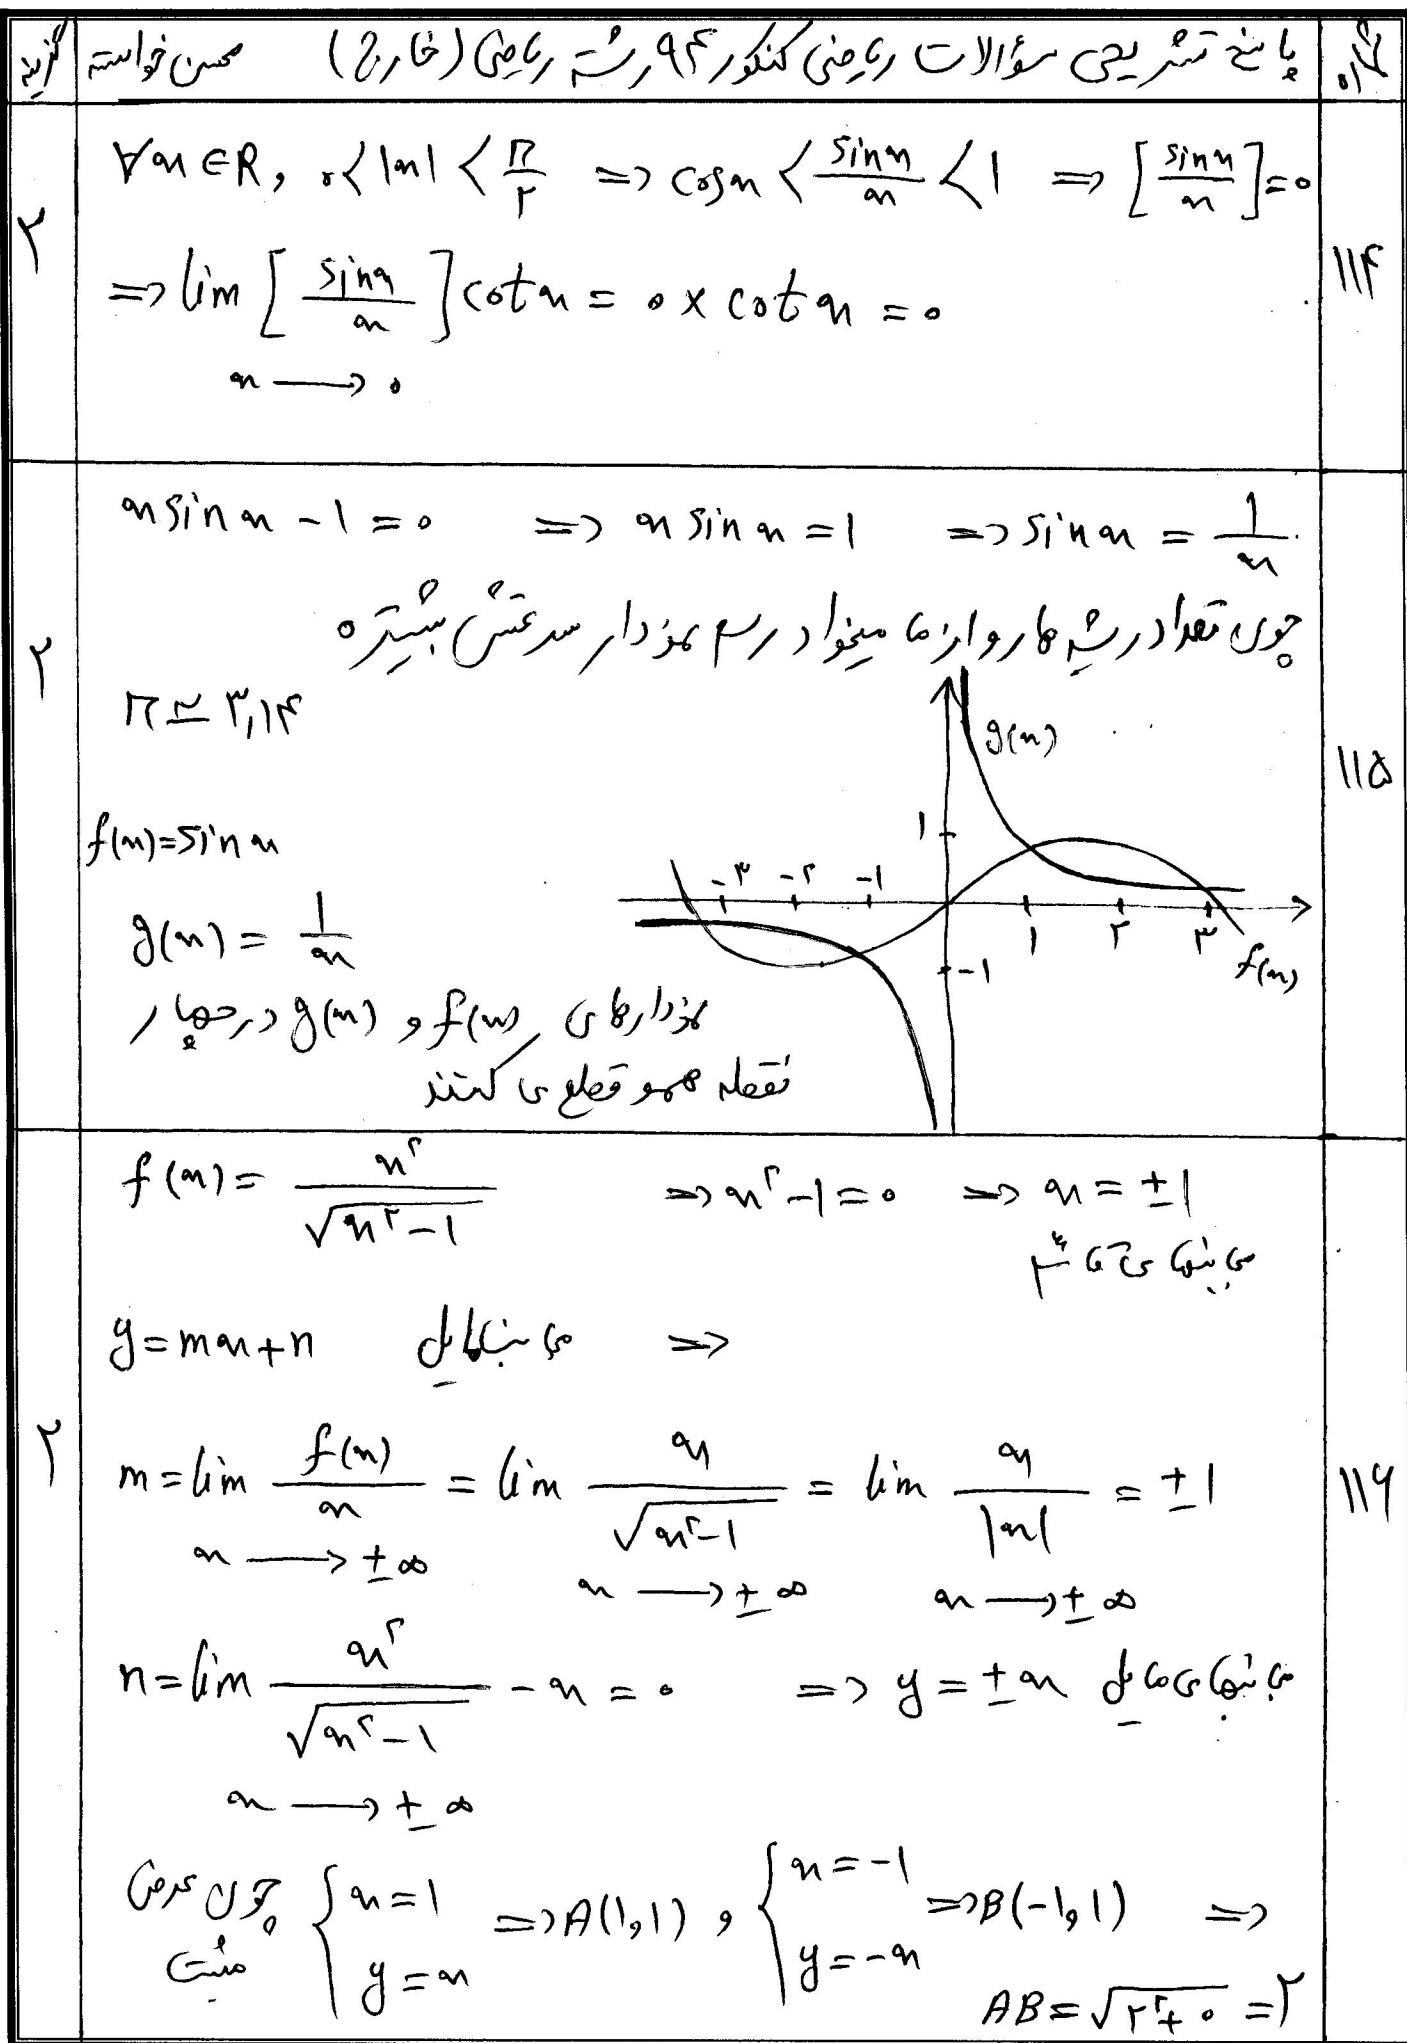 شماره | پاسخ تشریحی سؤالات ریاضی کنکور ۹۴ رشته ریاضی (خارج) محسن خواسته | گزینه
۱۱۴
∀x ∈ R, ۰ < |x| < π/۲ => cosx < sinx/x < 1 => [sinx/x] = ۰
=> lim [sinx/x] cotx = ۰ × cotx = ۰
x → ۰
۱۱۵
x sinx - 1 = ۰ => x sinx = 1 => sinx = 1/x
چون تعداد ریشه ها رو از ما میخواد رسم نمودار سرعتش بیشتره
۲
π ≃ ۳,۱۴
g(x)
f(x) = sinx
1
-۳ -۲ -1
1 ۲ ۳
g(x) = 1/x
-1
f(x)
نمودارهای f(x) و g(x) در چهار
نقطه همو قطع می کنند
۱۱۶
f(x) = x²/√(x²-1) => x²-1 = ۰ => x = ±1
مجانبهای قائم
y = mx+n مجانب مایل =>
۲
m = lim f(x)/x = lim x/√(x²-1) = lim x/|x| = ±1
x → ±∞ x → ±∞ x → ±∞
n = lim x²/√(x²-1) - x = ۰ => y = ±x مجانبهای مایل
x → ±∞
چون عرض مثبت { x=1 y=x => A(1,1) , { x=-1 y=-x => B(-1,1) =>
AB = √(۲²+۰) = ۲